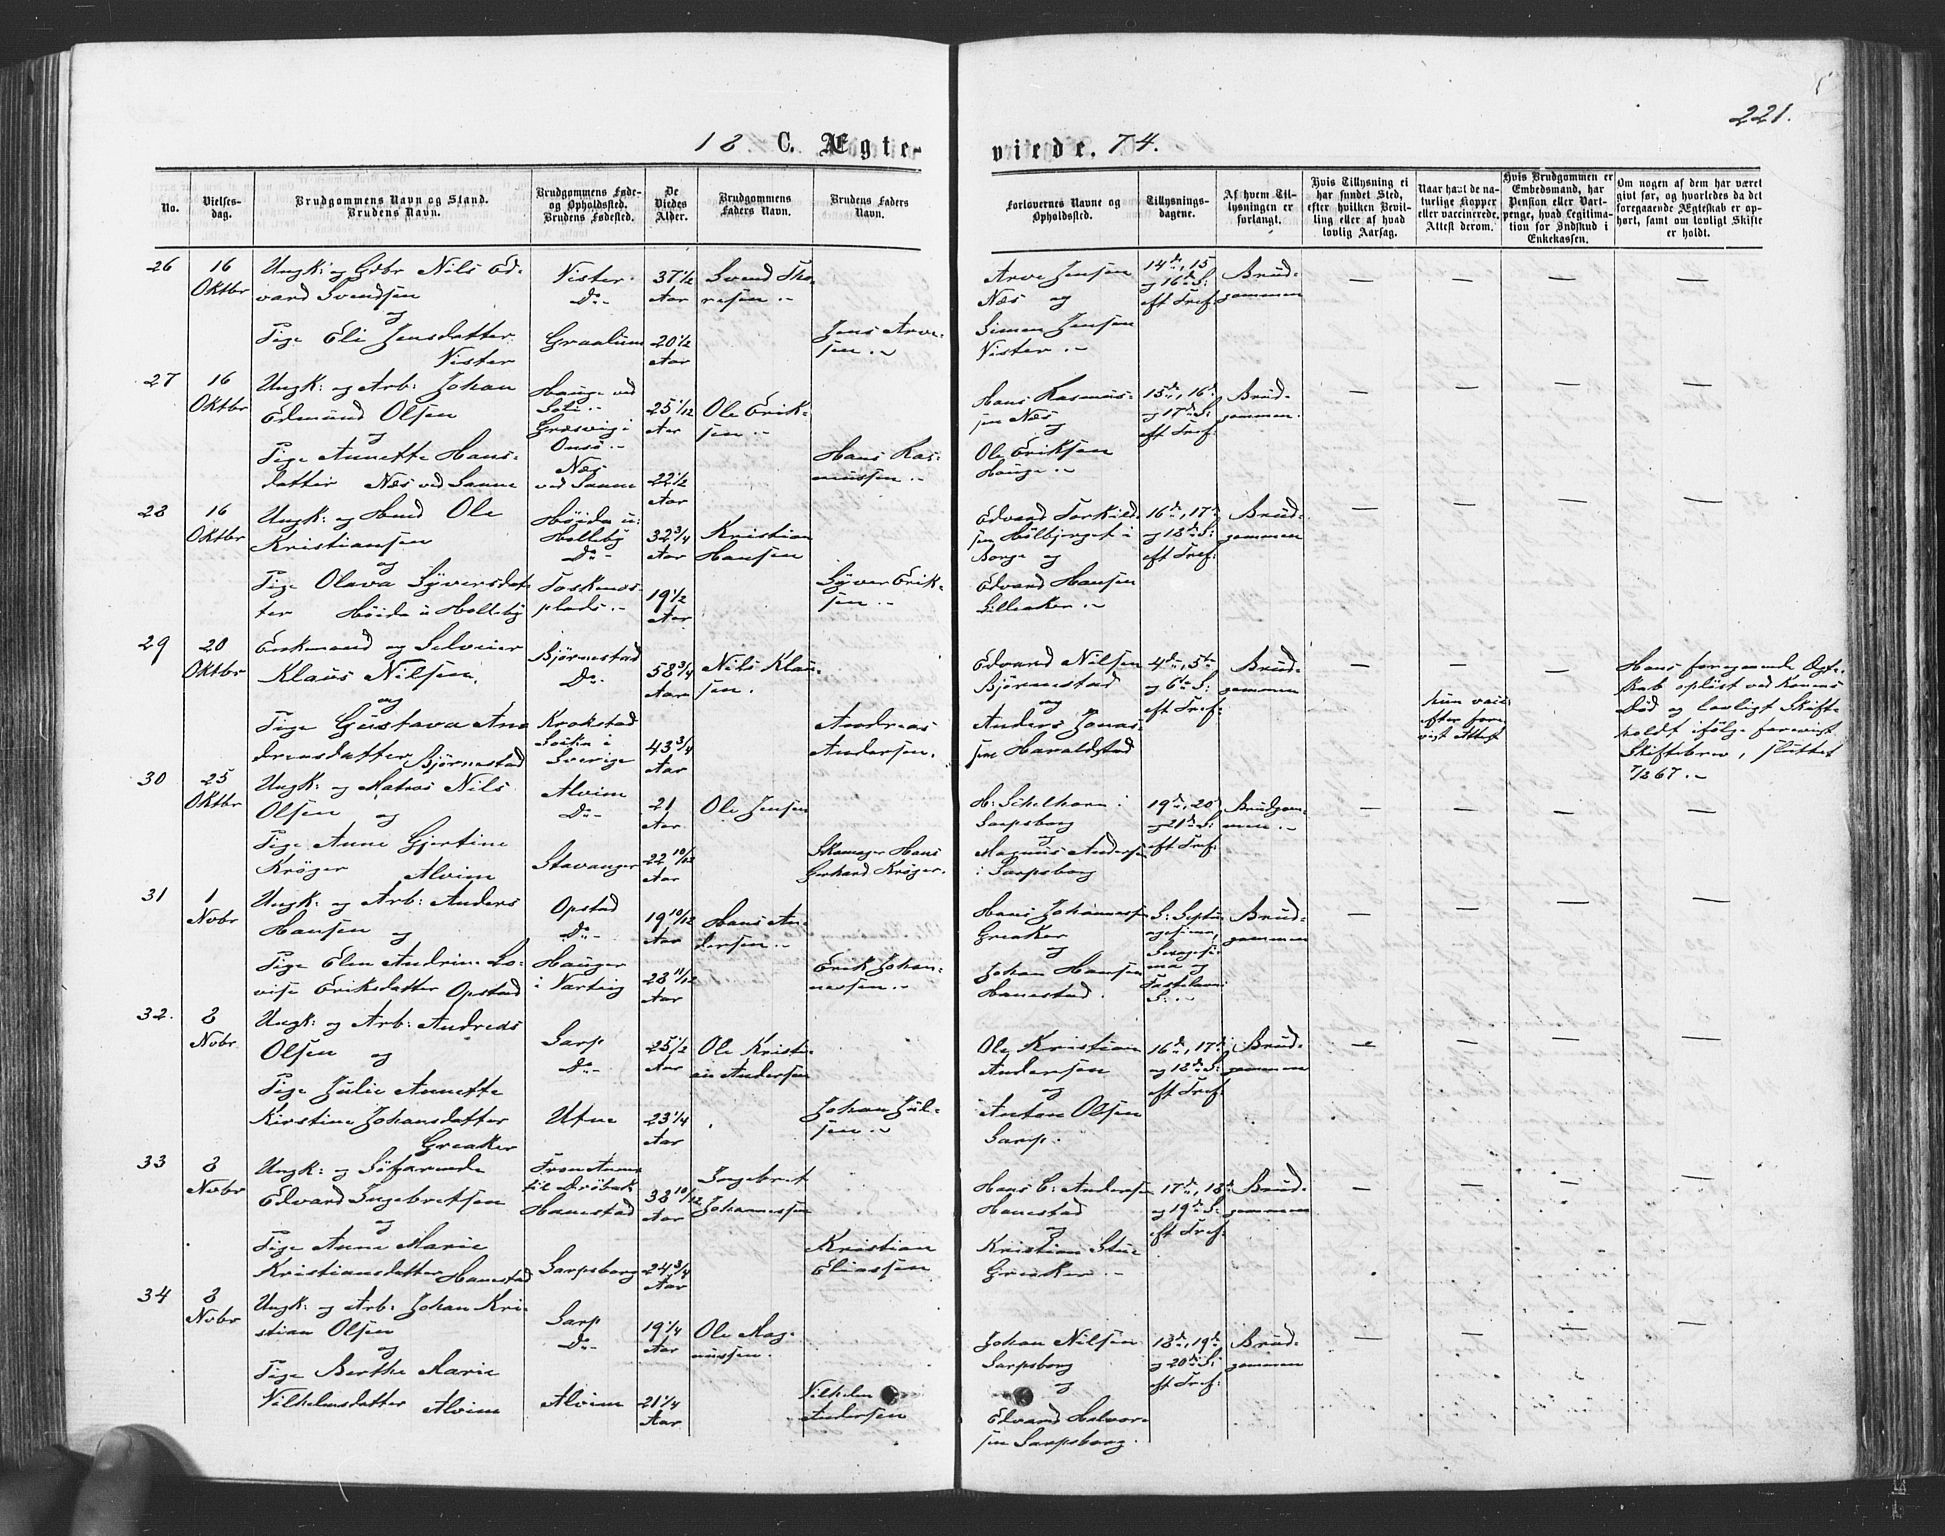 221.
18 C. Ægte-
viede. 74.
No.
Vielses-
dag.
Brudgommens Navn og Stand.
Brudens Navn.
Brudgommens Føde-
og Opholdssted.
Brudens Fødested.
De
Viedes
Alder.
Brudgommens
Faders Navn.
Brudens Faders
Navn.
Forlovernes Navne og
Opholdssted.
Tillysnings-
dagene.
Af hvem Til-
lysningen er
forlangt.
Hvis Tillysning ei
har fundet Sted,
efter hvilken Bevil-
ling eller af hvad
lovlig Aarsag.
Naar havt de na-
turlige Kopper
eller vaccinerede,
Attest derom.
Hvis Brudgommen er
Embedsmand, har
Pension eller Vart-
penge, hvad Legitima-
tion for Indskud i
Enkekassen.
Om nogen af dem har været
givt før, og hvorledes da det
foregaaende Ægteskab er op-
hørt, samt om lovligt Skifte
er holdt.
26
16
Oktbr
Ungk: og Gdbr Nils Ed-
vard Svendsen
og
Pige Eli Jensdatter
Vister
Vister
Do-
Graalum
37 1/2
Aar
20 1/2
Aar
Svend Tho-
resen
Jens Arve-
sen
Arve Jensen
Næs og
Simen Jensen
Vister
14de, 15
og 16de S:
eft Tref:
Brud-
gommen
— — — —
27
16
Oktbr
Ungk: og Arb: Johan
Edmund Olsen
og
Pige Annette Hans-
datter Næs ved Sanne
Hauge ved
Græsvig i
Onsø
Næs
ved Sanne
25 1/12
Aar
22 1/2
Aar
Ole Erik-
sen
Hans Ras-
mussen
Hans Rasmus-
sen Næs
og
Ole Eriksen
Hauge
15de, 16de
og 17de S:
eft Tref:
Brud-
gommen.
— — — —
28
16
Oktbr
Ungk: og Hmd Ole
Kristiansen
og
Pige Olava Syversdat-
ter Høida u Holleby
Høida u:
Holleby
Do-
Toskenæs-
plads
32 3/4
Aar
19 1/2
Aar
Kristian
Hansen
Syver Erik-
sen
Edvard Torkild-
sen Hølbjerget i
Borge og
Edvard Hansen
Lilleaker
16de, 17de
og 18de S:
eft Tref:
Brud-
gommen
— — — —
29
20
Oktbr
Enkemand og Selveier
Klaus Nilsen
og
Pige Gustava An-
dreasdatter Bjørnestad
Bjørnestad
Do-
Krokstad
Sokn i
Sverige
58 3/4
Aar
43 3/4
Aar
Nils Klau-
sen.
Andreas
Andersen.
Edvard Nilsen
Bjørnestad
og
Anders Jonas-
sen Haraldstad
4de, 5te
og 6te S:
eft Tref:
Brud-
gommen
—
—
hun vacc
efter fore-
vist Attest
—
Hans foregaaende Ægte-
skab opløst ved Konens
Død og lovligt Skifte
holdt ifølge forevist
Skiftebrev, sluttet
7/8 67.
30
25
Oktbr
Ungk: og Matros Nils
Olsen og
Pige Anne Gjertine
Krøger Alvim
Alvim
Do-
Stavanger
21
Aar
22 10/12
Aar
Ole Jensen
Skomager Hans
Gerhard Krøger.
H: Schelhorn i
Sarpsborg
og
Magnus Andersen
i Sarpsborg
19de, 20
og 21de S:
eft Tref:
Brudgom-
men.
— — — —
31
1
Novbr
Ungk: og Arb: Anders
Hansen og
Pige Elen Andrine Lo-
vise Eriksdatter Opstad
Opstad
Do-
Hauger
i Varteig
19 10/12
Aar
28 11/12
Aar
Hans An-
dersen
Erik Johan-
nessen
Hans Johannessen
Greaker
og
Johan Hansen
Hanestad.
S: Septu-
agesima,
Sexagesi-
ma og
Fastelavns
S:
Brud-
gommen
— — — —
32.
8
Novbr
Ungk: og Arb: Andreas
Olsen og
Pige Julie Annette
Kirstine Johansdatter
Greaker
Sarp
Do-
Utne
25 1/2
Aar
23 1/4
Aar
Ole Kristi-
an Andersen
Johan Jul-
sen
Ole Kristian
Andersen
og
Anton Olsen
Sarp.
16de, 17de
og 18de S:
eft Tref:
Brud-
gommen
— — — —
33
8
Novbr
Ungk: og Søfarende
Edvard Ingebretsen
og
Pige Anne Marie
Kristiansdatter Hanestad
til Drøbak
Hanestad
Sarpsborg
38 10/12
Aar
24 3/4
Aar
Ingebret
Johannessen
Kristian
Eliassen
Hans C: Andersen
Hanestad
og
Kristian Stu-
Greaker
17de, 18de
og 19de S:
eft Tref:
Brud-
gommen
— — — —
34
8
Novbr
Ungk: og Arb: Johan Kri-
stian Olsen
og
Pige Berthe Marie
Vilhelmsdatter Alvim
Sarp
Do-
Alvim
19 1/4
Aar
21 1/4
Aar
Ole Mag-
nussen.
Vilhelm
Andersen
Johan Nilsen
Sarpsborg
og
Edvard Halvor-
sen Sarpsborg.
18de, 19de
og 20de S:
eft Tref:
Brud-
gommen
— — — —